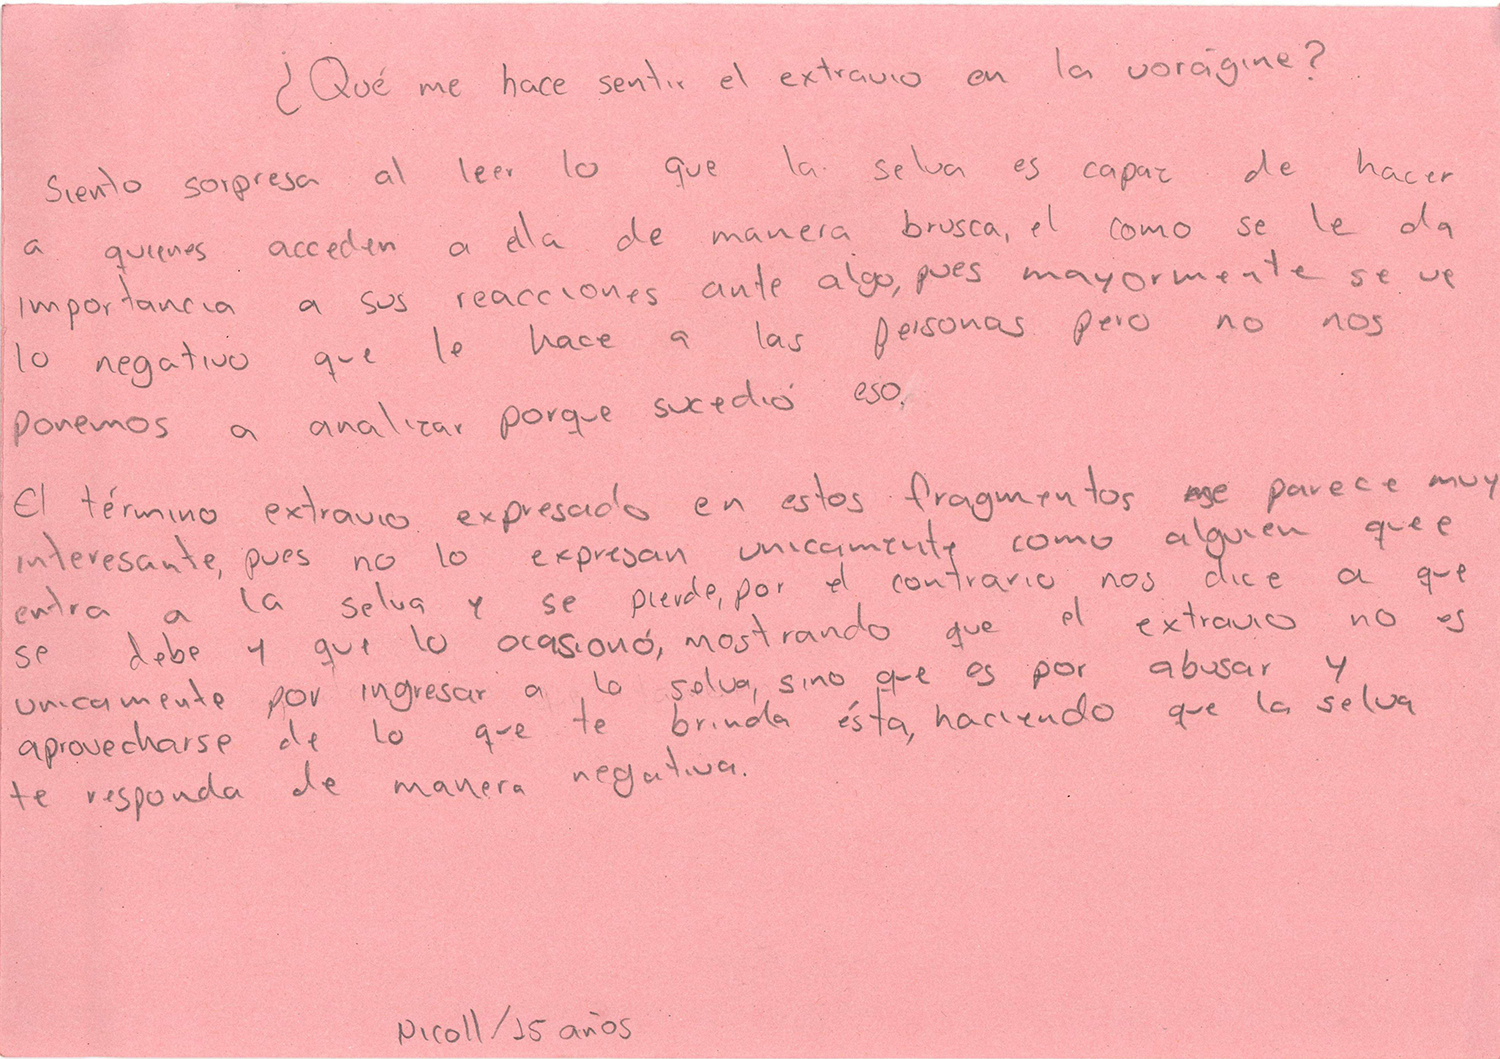 ¿Qué me hace sentir el extravio en la vorágine?
Siento sorpresa al leer lo que la selva es capaz de hacer
a quienes acceden a ella de manera brusca, el como se le da
importancia a sus reacciones ante algo, pues mayormente se ve
lo negativo que le hace a las personas pero no nos
ponemos a analizar porque sucedió eso.
El término extravio expresado en estos fragmentos me parece muy
interesante, pues no lo expresan unicamente como alguien quee
entra a la selva y se pierde, por el contrario nos dice a que
se debe y que lo ocasionó, mostrando que el extravio no es
unicamente por ingresar a la selva, sino que es por abusar y
aprovecharse de lo que te brinda ésta, haciendo que la selva
te responda de manera negativa.
Nicoll/15 años